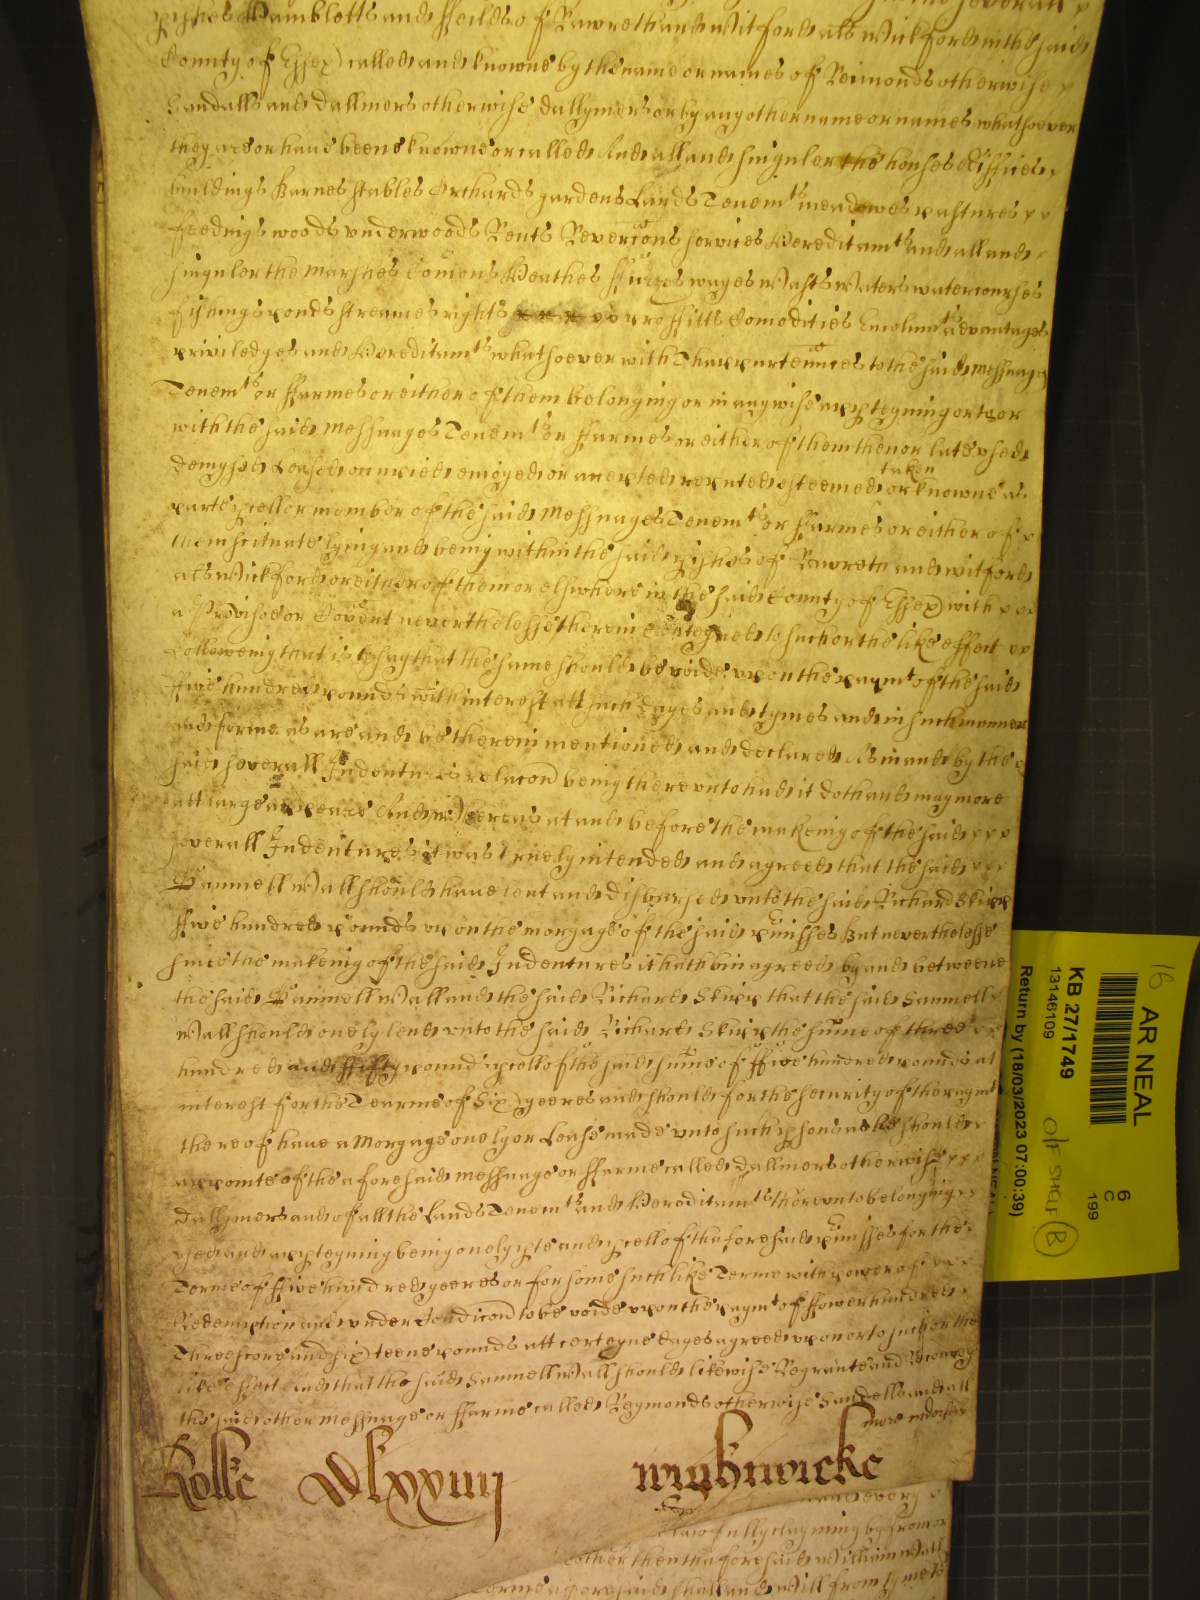 pishes Hambletts and Feilds of Rawreth and Witford als Wickford in the said
County of Essex) called and knowne by the name or names of Reimonds otherwise
Sandalls and Dallmers otherwise Dallymers or by any other name or names whatsoever
they are or have beene knowne or called And all and singuler the houses Ediffices
buildings Barnes stables Orchards gardens Lands Tenemts meadowes pastures
feedings woods underwoods Rents Revercons services Hereditamts and all and
singuler the marshes Comons Heathes Furzes wayes Wasts Waters watercourses
fishings ponds streames rights proffitts Comodities Emolumts advantages
priviledges and Hereditamts whatsoever with Thappurtennces to the said messuages
Tenemts or Farmes or either of them belonging or in any wise appteyning or to or
with the said messuages Tenemts or Farmes or either of them then or late used
demysed Leased occupied enioyed or accepted reputed esteemed taken or knowne as
parte pcell or member of the said messuages Tenemts or Farmes or either of
them scituate lying and being within the said pishes of Rawreth and Witford
als Wickford or either of them or elswhere in the said County of Essex) with
a Provisoe or Covent neverthelesse therein conteyned to such or the like effect
followeing that is to say that the same should be voide upon the paymt of the said
Five hundred pounds with interest att such dayes and tymes and in such manner
and forme as are and be therein mentioned and declared As in and by the
said severall Indentures relacon being thereunto had it doth and may more
att large appeare And Whereas at and before the makeing of the said
severall Indentures it was truely intended and agreed that the said
Samuell Wall should have lent and disbursed unto the said Richard Skipp
Five hundred pounds upon the morgage of the said pmisses But neverthelesse
since the makeing of the said Indentures it hath bin agreed by and betweene
the said Samuell Wall and the said Richard Skipp that the said Samuell
Wall should onely lend unto the said Richard Skipp the sume of three
hundred and Fifty pounds pcell of the said sume of Five hundred pounds at
interest for the Tearme of Six yeeres and should for the security of the paymt
thereof have a Morgage onely or Lease made unto such psons as he should
appointe of the aforesaid messuage or Farme called Dallmers otherwise
Dallymers and of all the Lands Tenemts and Hereditamts thereunto belonging
used and appteyning being onely pte and pcell of thaforesaid pmisses for the
Terme of Five hundred yeeres or for some such like Terme with power of
Redemption and under Condicon to be voide upon the paymt of Fower hundred
Threescore and sixteene pounds att certeyne dayes agreed upon or to such or the
like effect And that the said Samuell Wall should likewise Regrante and Reconvey
the said other messuage or Farme called Reymonds otherwise Sandells and all
more indorsed
Rolle Dlxxiiij Wightwicke
and every
lawfully clayming by from or
other then thaforesaid William Wall
terme aforesaid shall and Will from tyme to
16
AR NEAL
KB 27/1749
13146109
Return by (18/03/2023 07:00:39)
6
C
199
O/F SHELF
B